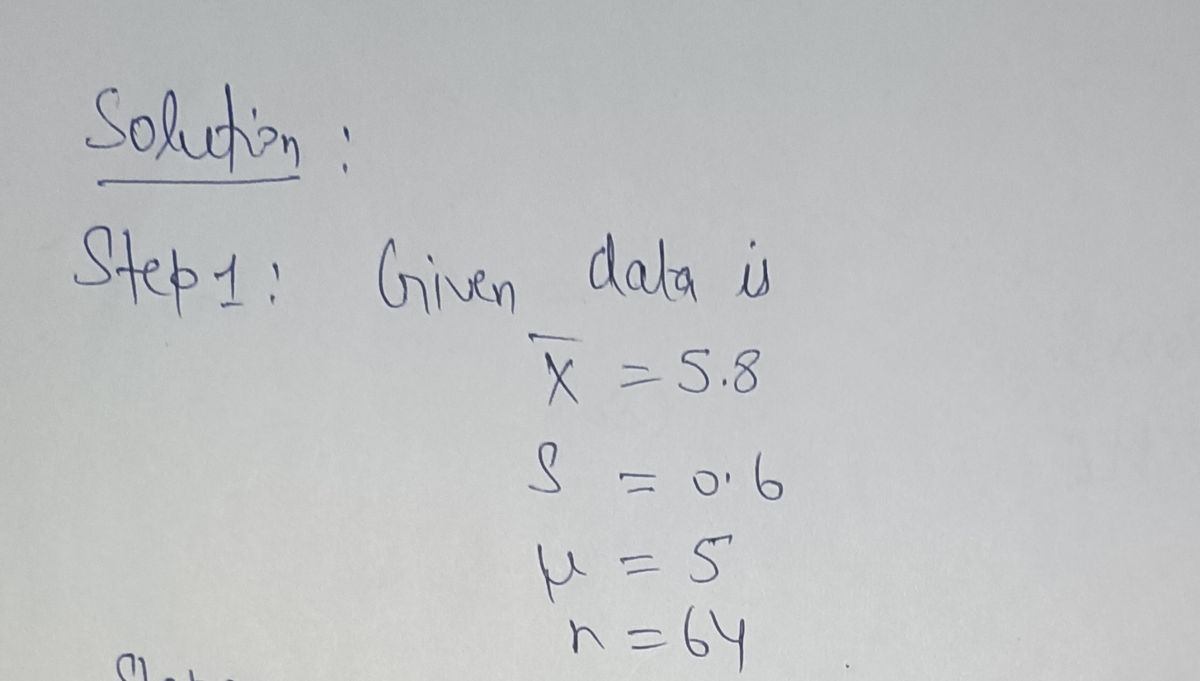 Solution :
Step 1 : Given data is
X̅ = 5.8
S = 0.6
μ = 5
n = 64